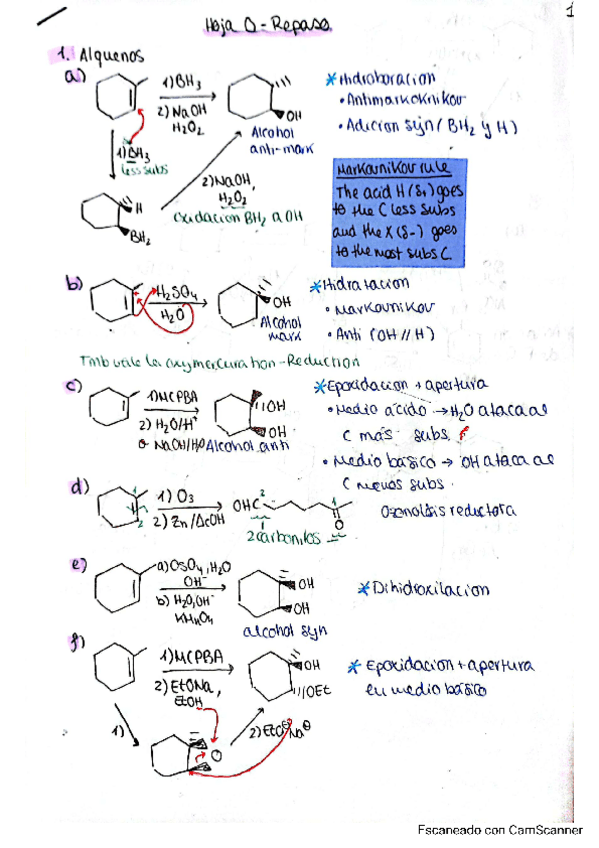 Hoja 0 - Repaso.
1
1. Alquenos
a)
1) BH3
2) NaOH
H2O2
OH
Alcohol
anti-mark
*Hidroboracion
• Antimarkoknikov
• Adicion syn ( BH2 y H)
1) BH3
less subs
H
BH2
2) NaOH,
H2O2
oxidacion BH2 a OH
Markovnikov rule
The acid H (δ+) goes
to the C less subs
and the X (δ-) goes
to the most subs C.
b)
H2SO4
H2O
OH
Alcohol
mark
*Hidratacion
• Markovnikov
• Anti (OH // H)
Tmb vale la oxymercuration-Reduction
c)
1) MCPBA
2) H2O/H+
o NaOH/H2O
OH
OH
Alcohol anti
*Epoxidacion + apertura
• Medio acido → H2O ataca al
C más subs.
• Medio básico → OH ataca al
C menos subs.
d)
1
2
1) O3
2) Zn/AcOH
OHC
2
1
O
2 carbonilos
Ozonolisis reductora
e)
a) OsO4, H2O
OH-
b) H2O, OH-
KMnO4
OH
OH
alcohol syn
*Dihidroxilacion
f)
1) MCPBA
2) EtONa,
EtOH
OH
OEt
*Epoxidacion + apertura
en medio básico
1)
O
2) EtO⊖Na⊕
Escaneado con CamScanner